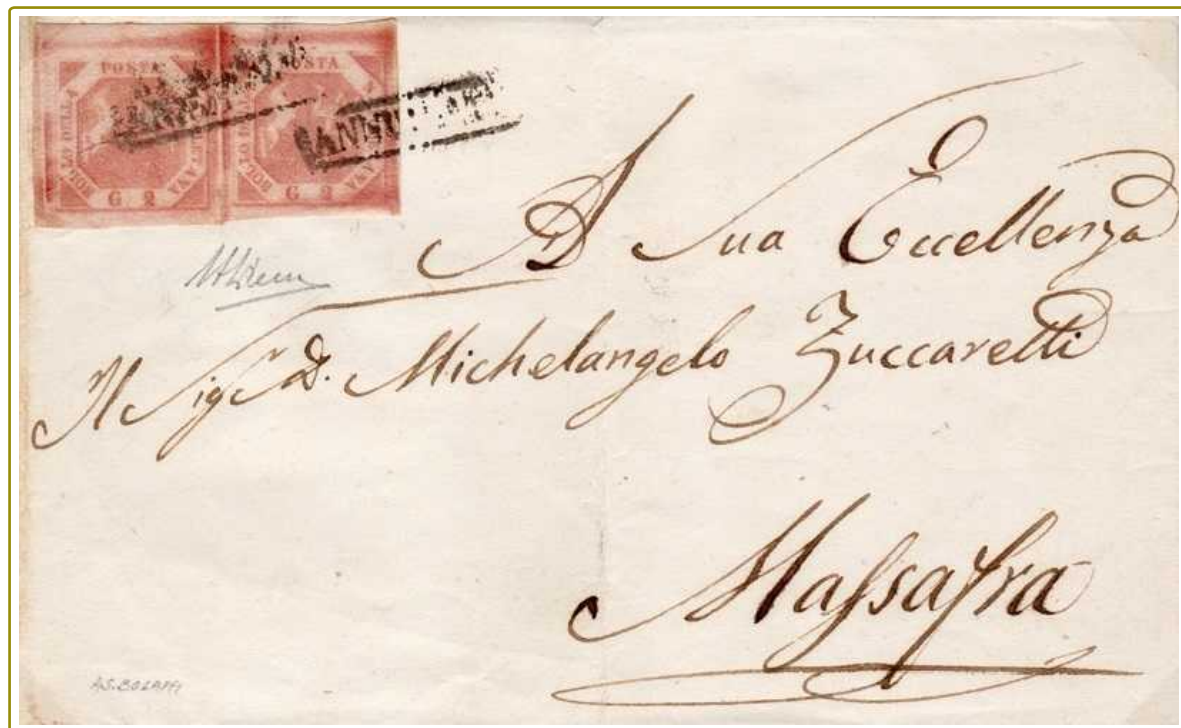 BOLLO DELLA POSTA NAPOLETANA G 2
BOLLO DELLA POSTA NAPOLETANA G 2
ANNULLATO
ANNULLATO
A Sua Eccellenza
Il Sigr D. Michelangelo Zuccaretti
Massafra
A.S. BOLAFFI